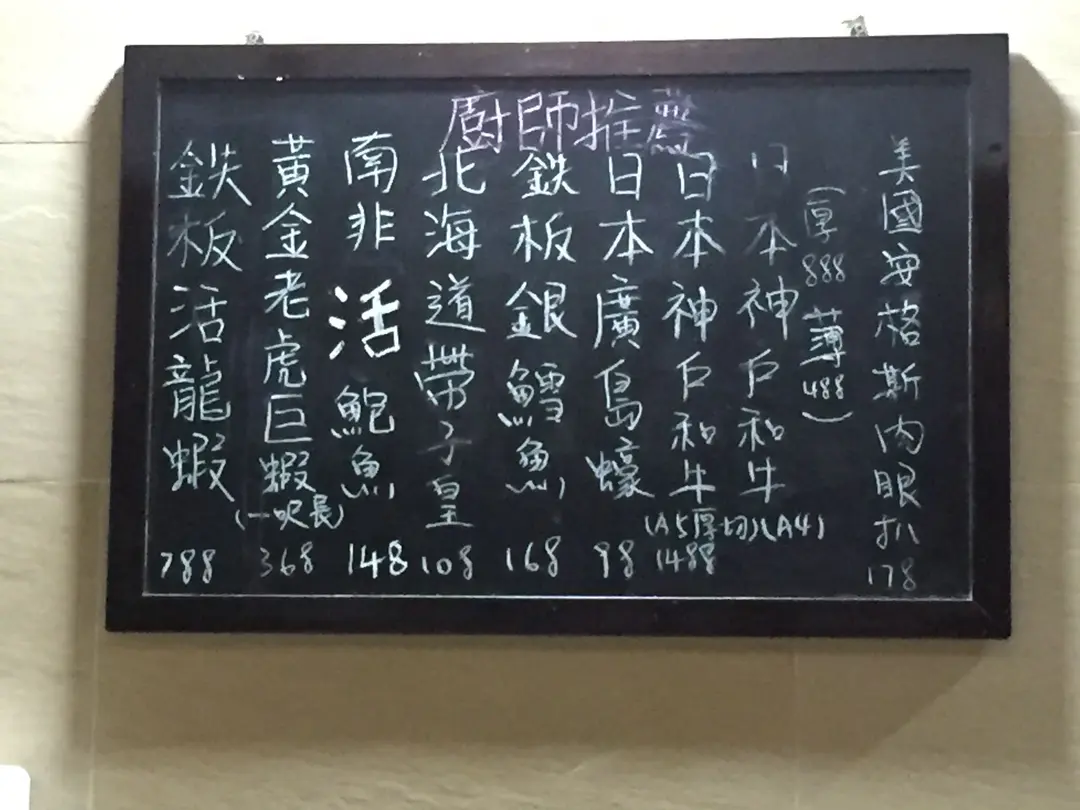 廚師推薦
美國安格斯肉眼扒
178
日本神戶和牛
(A4)
(厚888 薄488)
日本神戶和牛
(A5厚切)
1488
日本廣島蠔
98
鉄板銀鱈魚
168
北海道帶子皇
108
南非活鮑魚
148
黃金老虎巨蝦
(一呎長)
368
鉄板活龍蝦
788